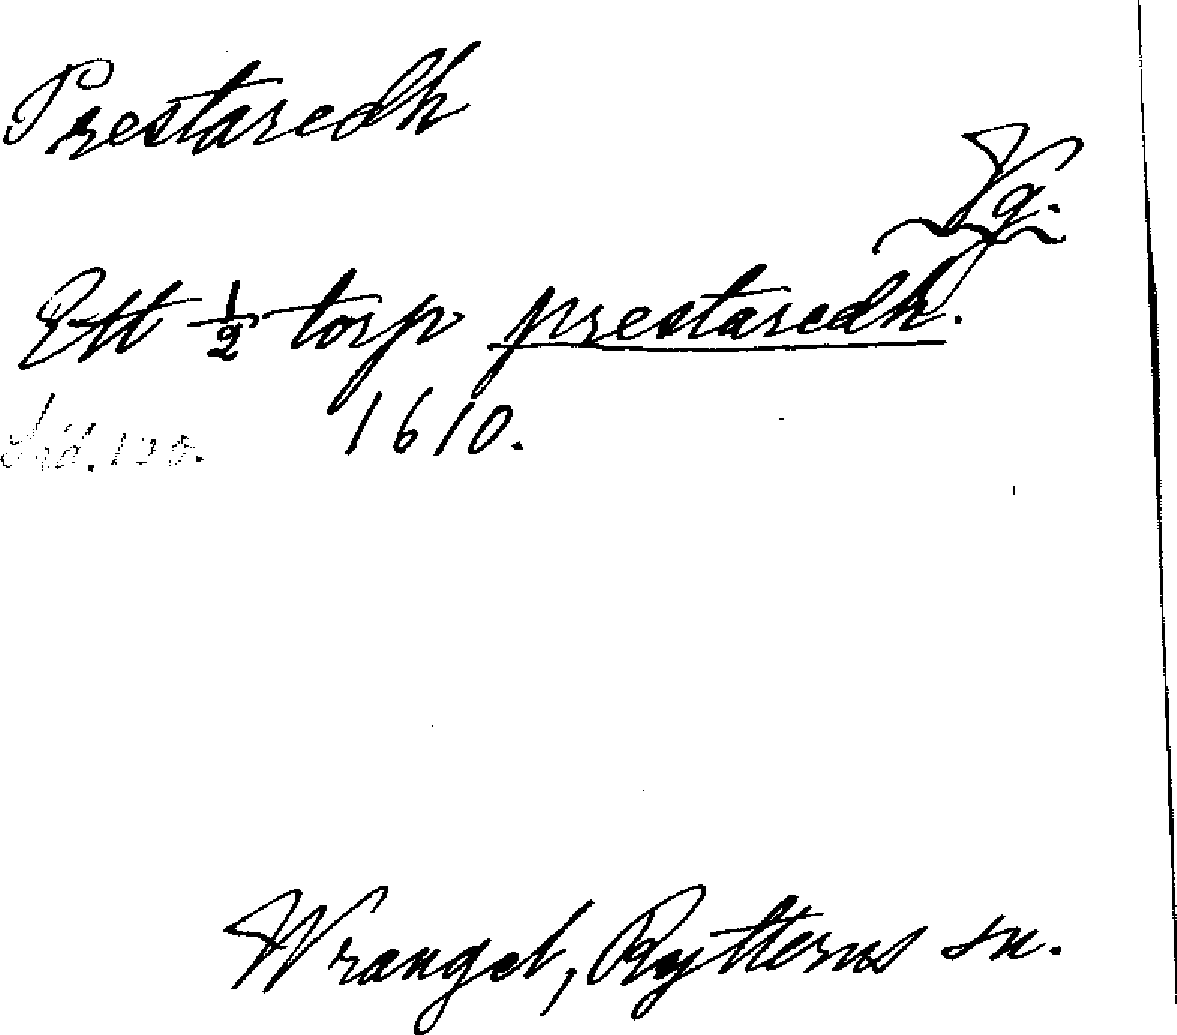 Prestaredh
Vg.
Ett 1/2 torp prestaredh.
Sid. 120. 1610.
Wrangel, Rytterns sn.